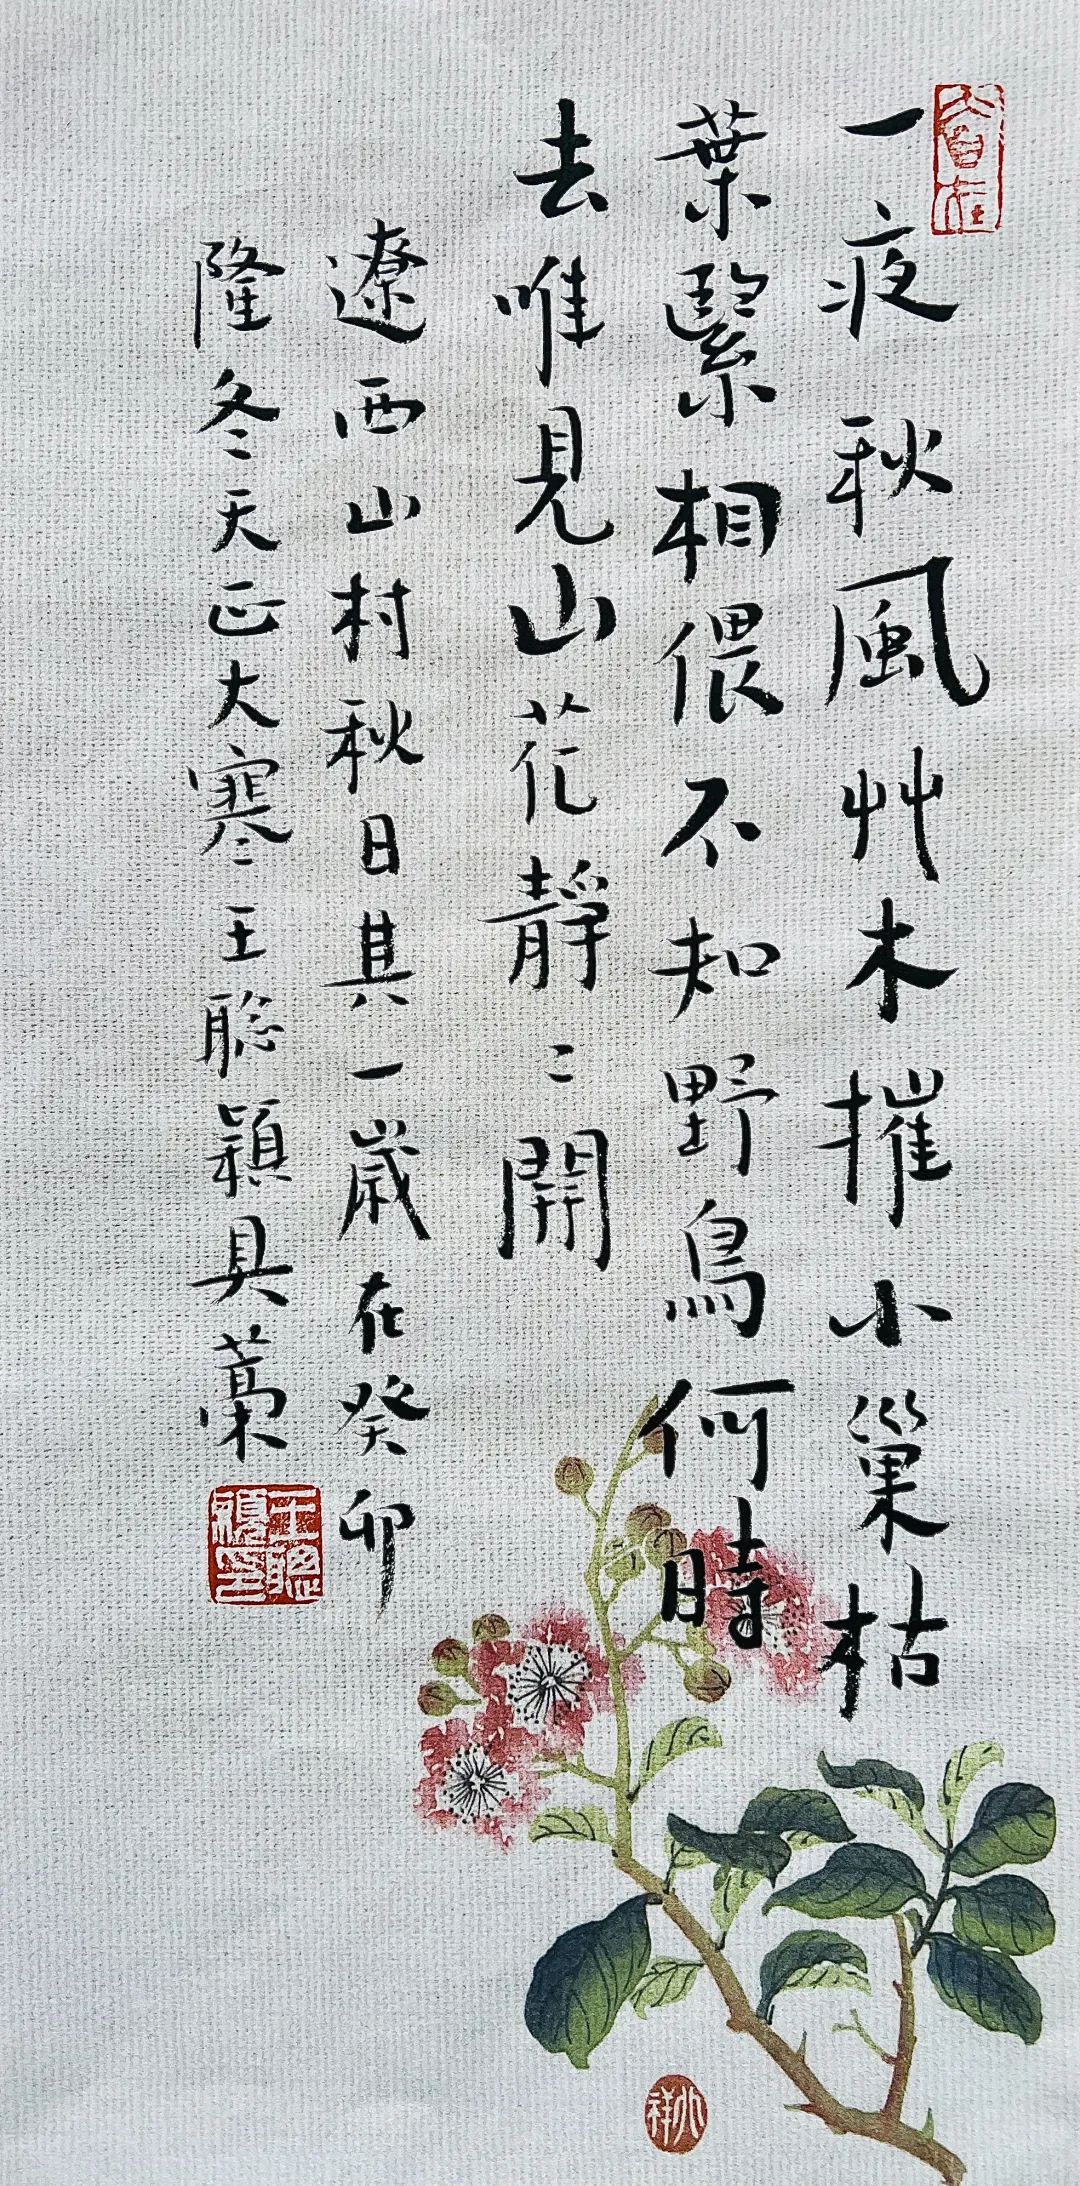 一夜秋風艸木摧小巢枯
葉繫相偎不知野鳥何時
去唯見山花靜〻開
遼西山村秋日其一歲在癸卯
隆冬天正大寒王聰穎具藁
大自在
王聰穎印